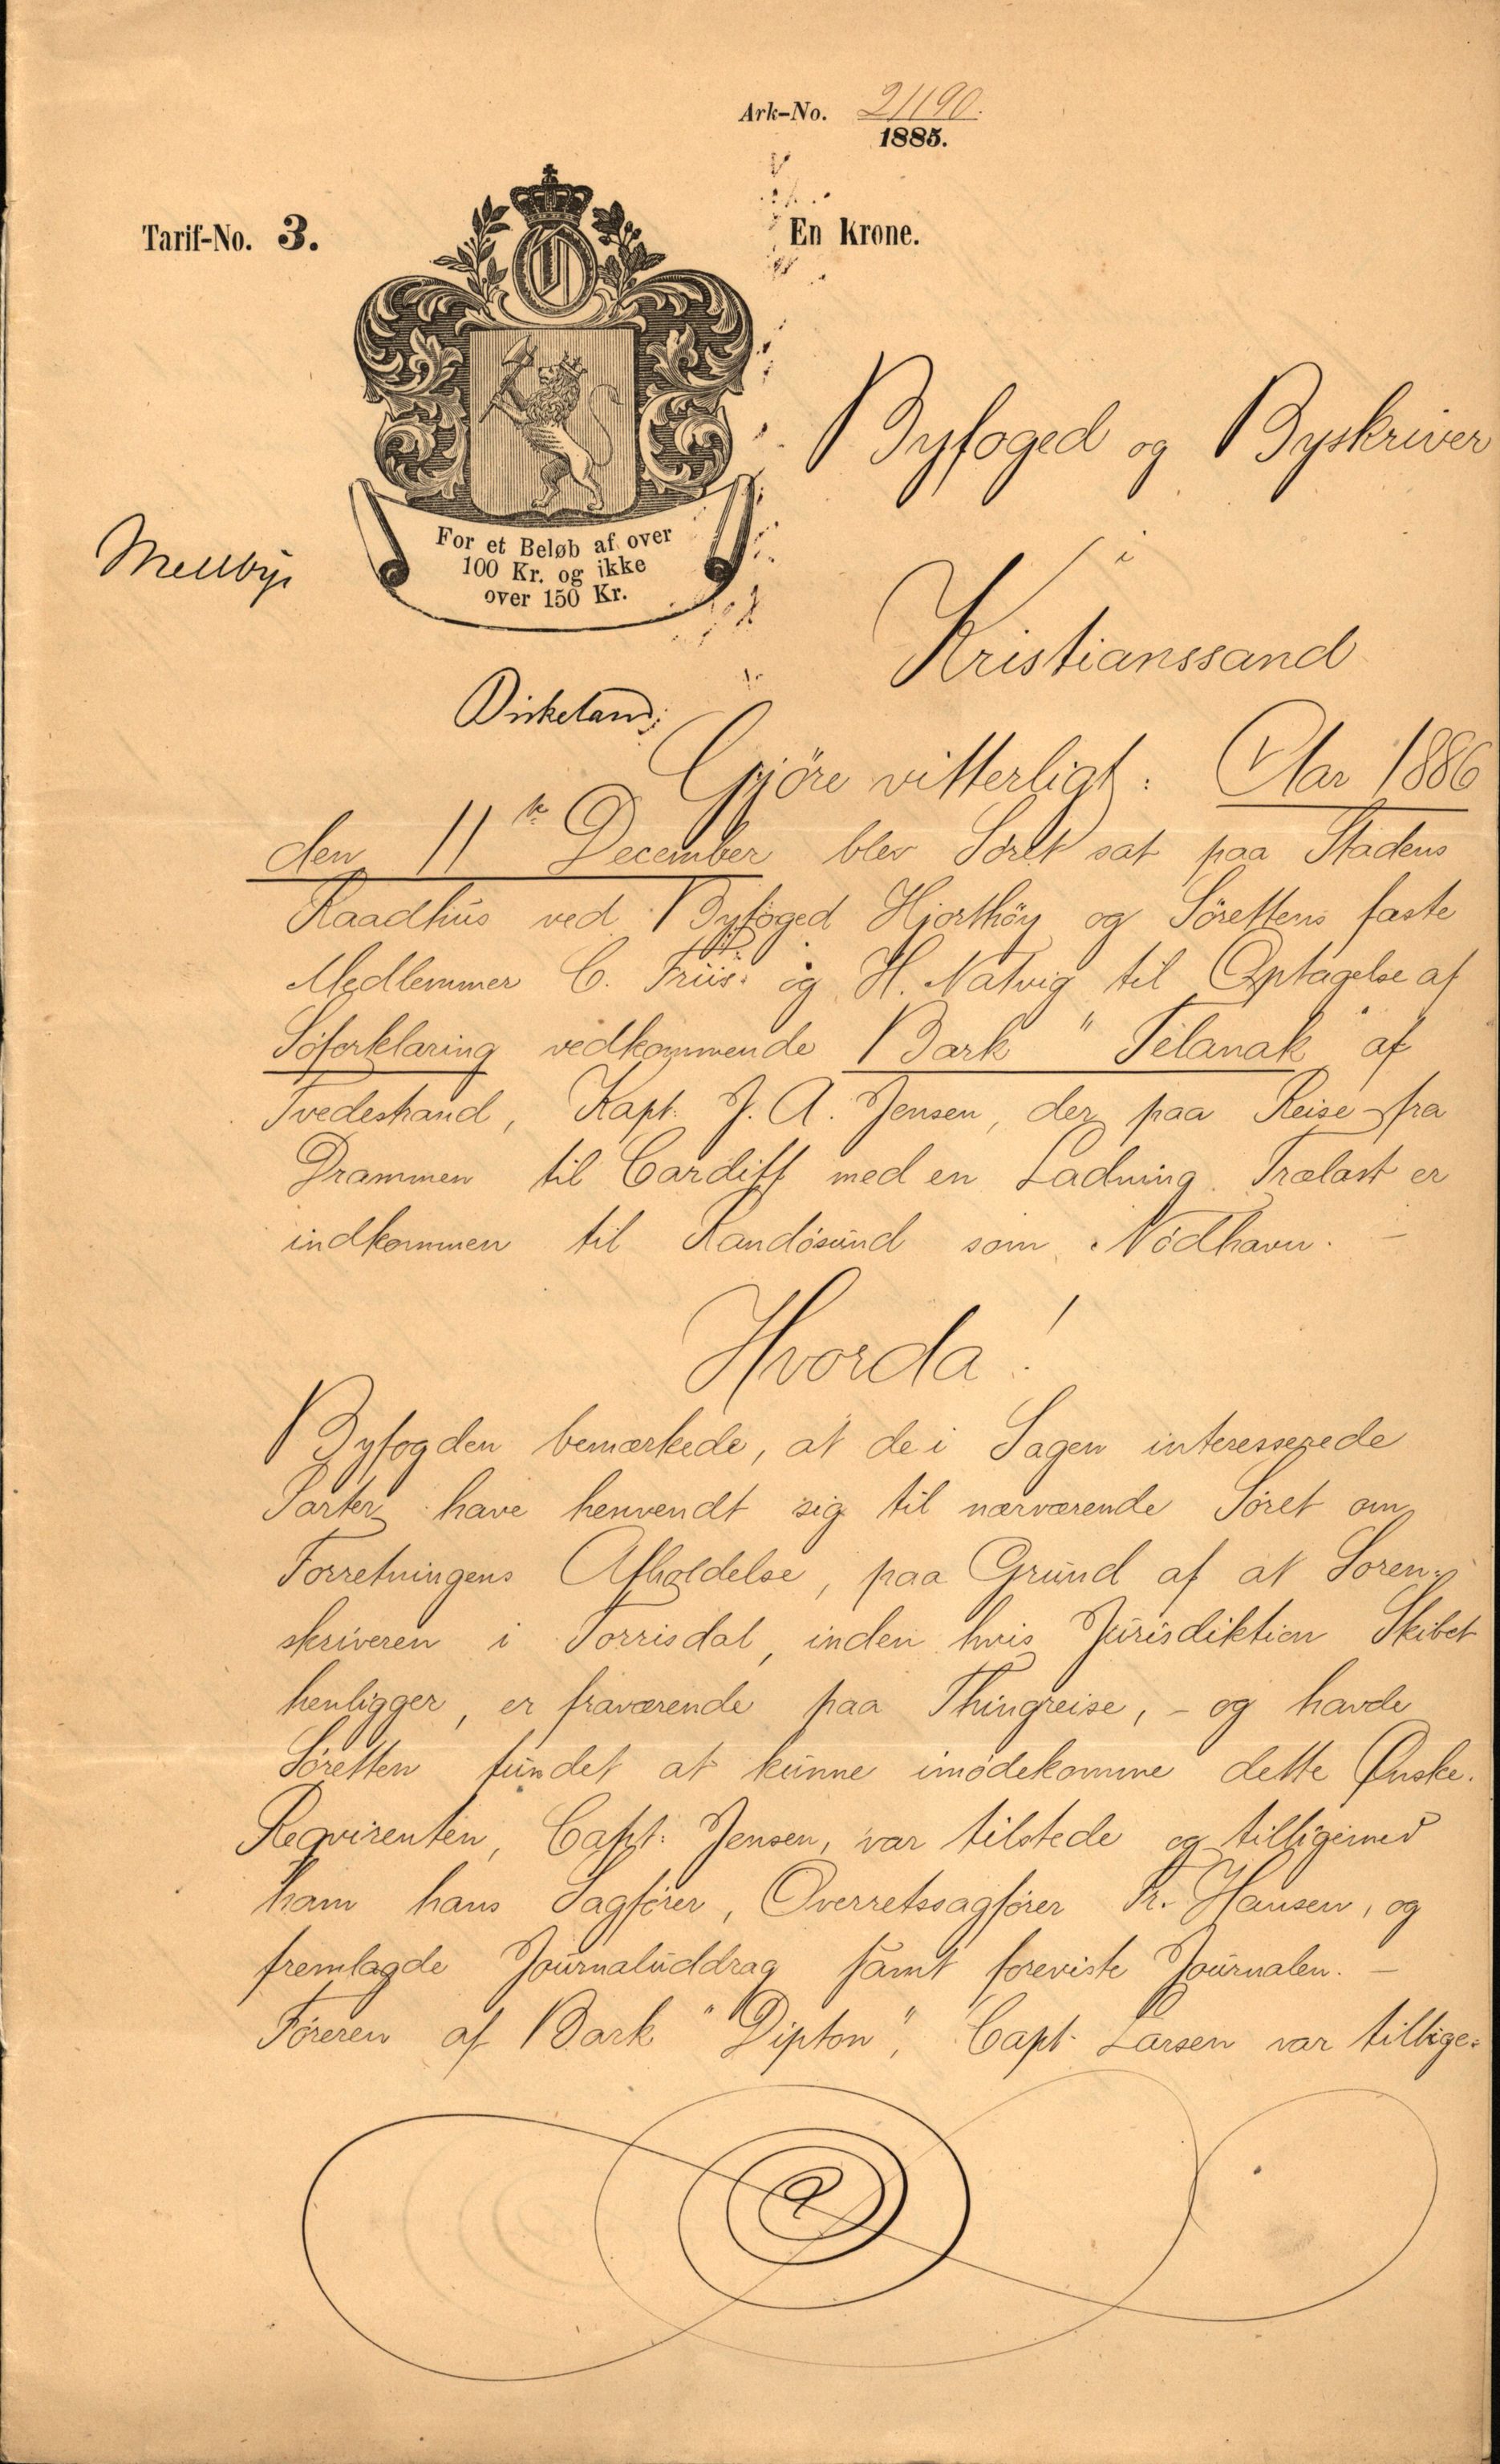 Ark-No. 21190.
1885.
Tarif-No. 3.
En Krone.
For et Beløb af over
100 Kr. og ikke
over 150 Kr.
Mellbye
Birkeland
Byfoged og Byskriver
i
Kristianssand
Gjöre vitterligt: Aar 1886
den 11te December blev Söret sat paa Stadens
Raadhus ved Byfoged Hjorthöy og Sörettens faste
Medlemmer C. Friis og H. Natvig til Optagelse af
Söforklaring vedkommende Bark "Telanak" af
Tvedestrand, Kapt. J. A. Jensen, der paa Reise fra
Drammen til Cardiff med en Ladning Trælast er
indkommen til Randösund som Nödhavn. –
Hvorda!
Byfogden bemærkede, at de i Sagen interesserede
Parter have henvendt sig til nærværende Söret om
Forretningens Afholdelse, paa Grund af at Soren-
skriveren i Torrisdal, inden hvis Jurisdiktion Skibet
henligger, er fraværende paa Thingreise, – og havde
Söretten fundet at kunne imödekomme dette Ønske.
Reqvirenten, Capt: Jensen, var tilstede og tilligemed
ham hans Sagförer, Overretssagförer Fr. Hansen, og
fremlagde Journaluddrag samt foreviste Journalen. –
Föreren af Bark "Dipton", Capt. Larsen var tillige-